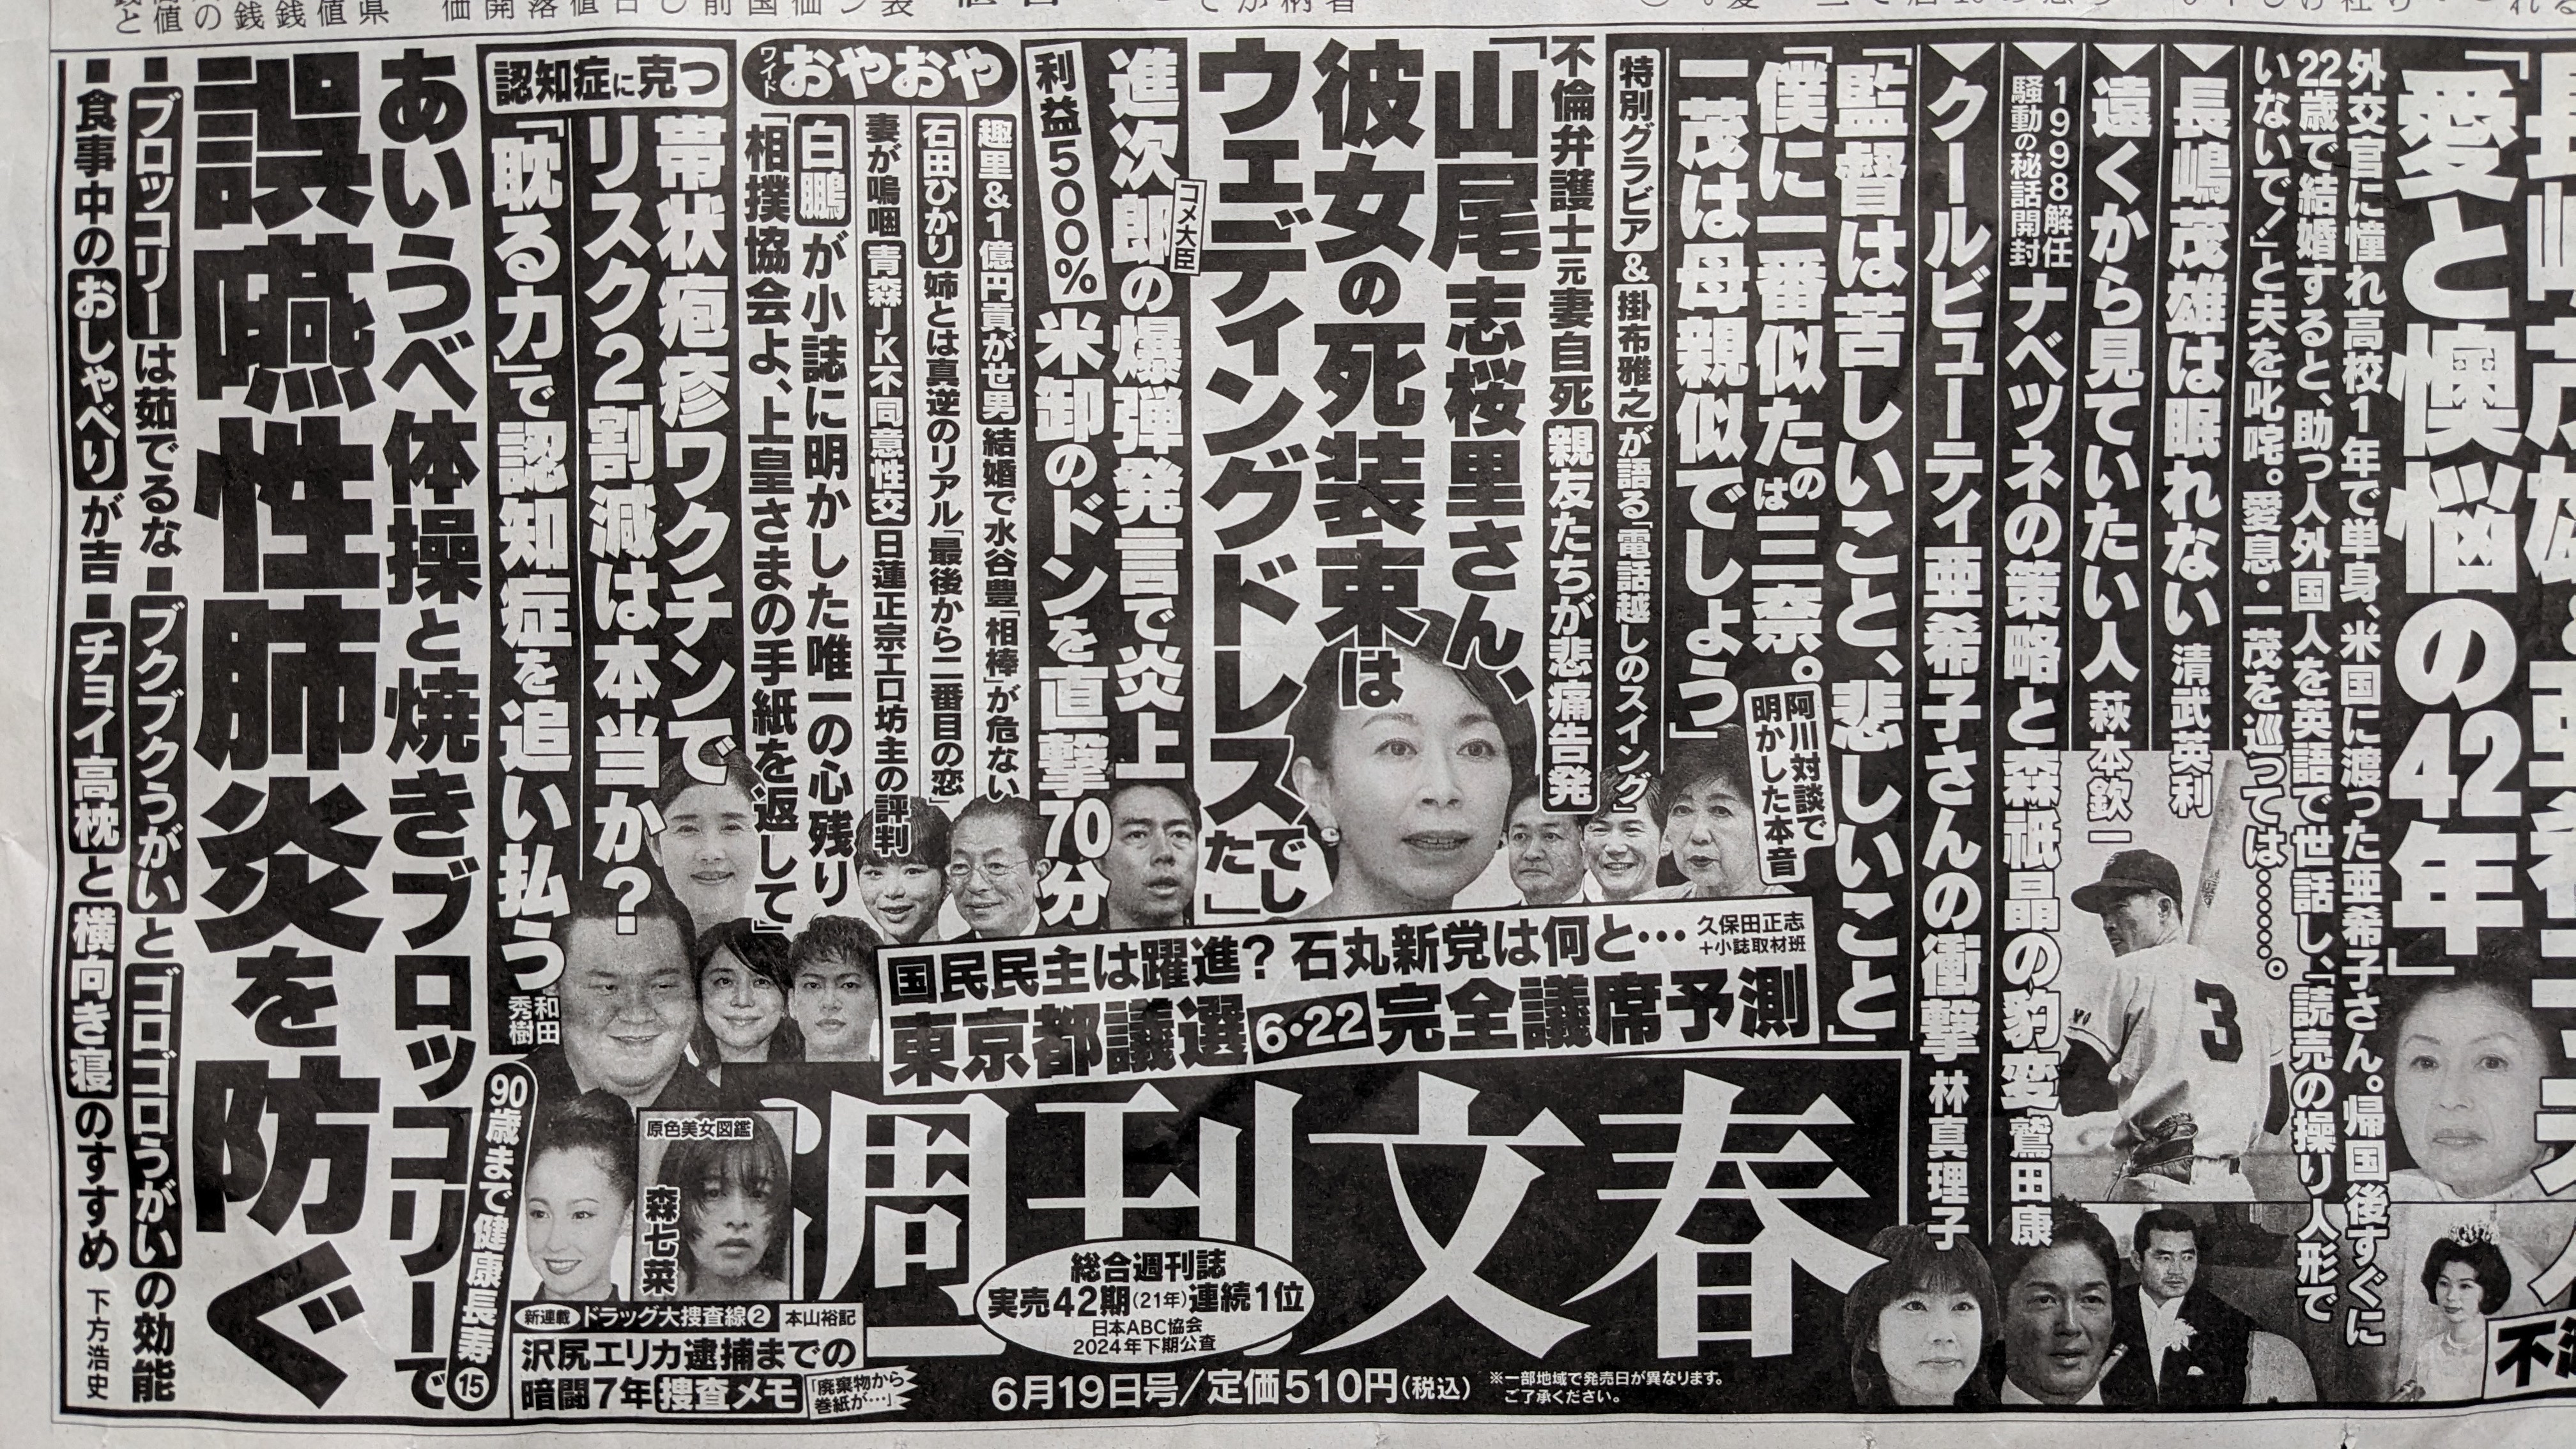 「愛と懊悩の42年」
外交官に憧れ高校1年で単身、米国に渡った亜希子さん。帰国後すぐに
22歳で結婚すると、助っ人外国人を英語で世話し、「読売の操り人形で
いないで！」と夫を叱咤。愛息・一茂を巡っては……。
長嶋茂雄は眠れない 清武英利
遠くから見ていたい人 萩本欽一
1998解任
騒動の秘話開封
ナベツネの策略と森祇晶の豹変 鷲田康
クールビューティ亜希子さんの衝撃 林真理子
「監督は苦しいこと、悲しいこと」
「僕に一番似たのは三奈。
一茂は母親似でしょう」
阿川対談で
明かした本音
特別グラビア&掛布雅之が語る「電話越しのスイング」
不倫弁護士元妻自死 親友たちが悲痛告発
「山尾志桜里さん、
彼女の死装束は
ウェディングドレスでした」
コメ大臣
進次郎の爆弾発言で炎上
利益500%
米卸のドンを直撃70分
ワイド おやおや
趣里&1億円貢がせ男 結婚で水谷豊「相棒」が危ない
石田ひかり 姉とは真逆のリアル「最後から二番目の恋」
妻が嗚咽 青森JK不同意性交 日蓮正宗エロ坊主の評判
白鵬が小誌に明かした唯一の心残り
「相撲協会よ、上皇さまの手紙を返して」
認知症に克つ
帯状疱疹ワクチンで
リスク2割減は本当か？
「耽る力」で認知症を追い払う 和田秀樹
あいうべ体操と焼きブロッコリーで
誤嚥性肺炎を防ぐ
90歳まで健康長寿⑮
■ブロッコリーは茹でるな■ブクブクうがいとゴロゴロうがいの効能
■食事中のおしゃべりが吉■チョイ高枕と横向き寝のすすめ 下方浩史
国民民主は躍進？石丸新党は何と… 久保田正志
＋小誌取材班
東京都議選6・22完全議席予測
週刊文春
総合週刊誌
実売42期(21年)連続1位
日本ABC協会
2024年下期公査
6月19日号／定価510円(税込)
※一部地域で発売日が異なります。
ご了承ください。
原色美女図鑑
森七菜
新連載 ドラッグ大捜査線② 本山裕記
沢尻エリカ逮捕までの
暗闘7年捜査メモ
「廃棄物から
巻紙が…」